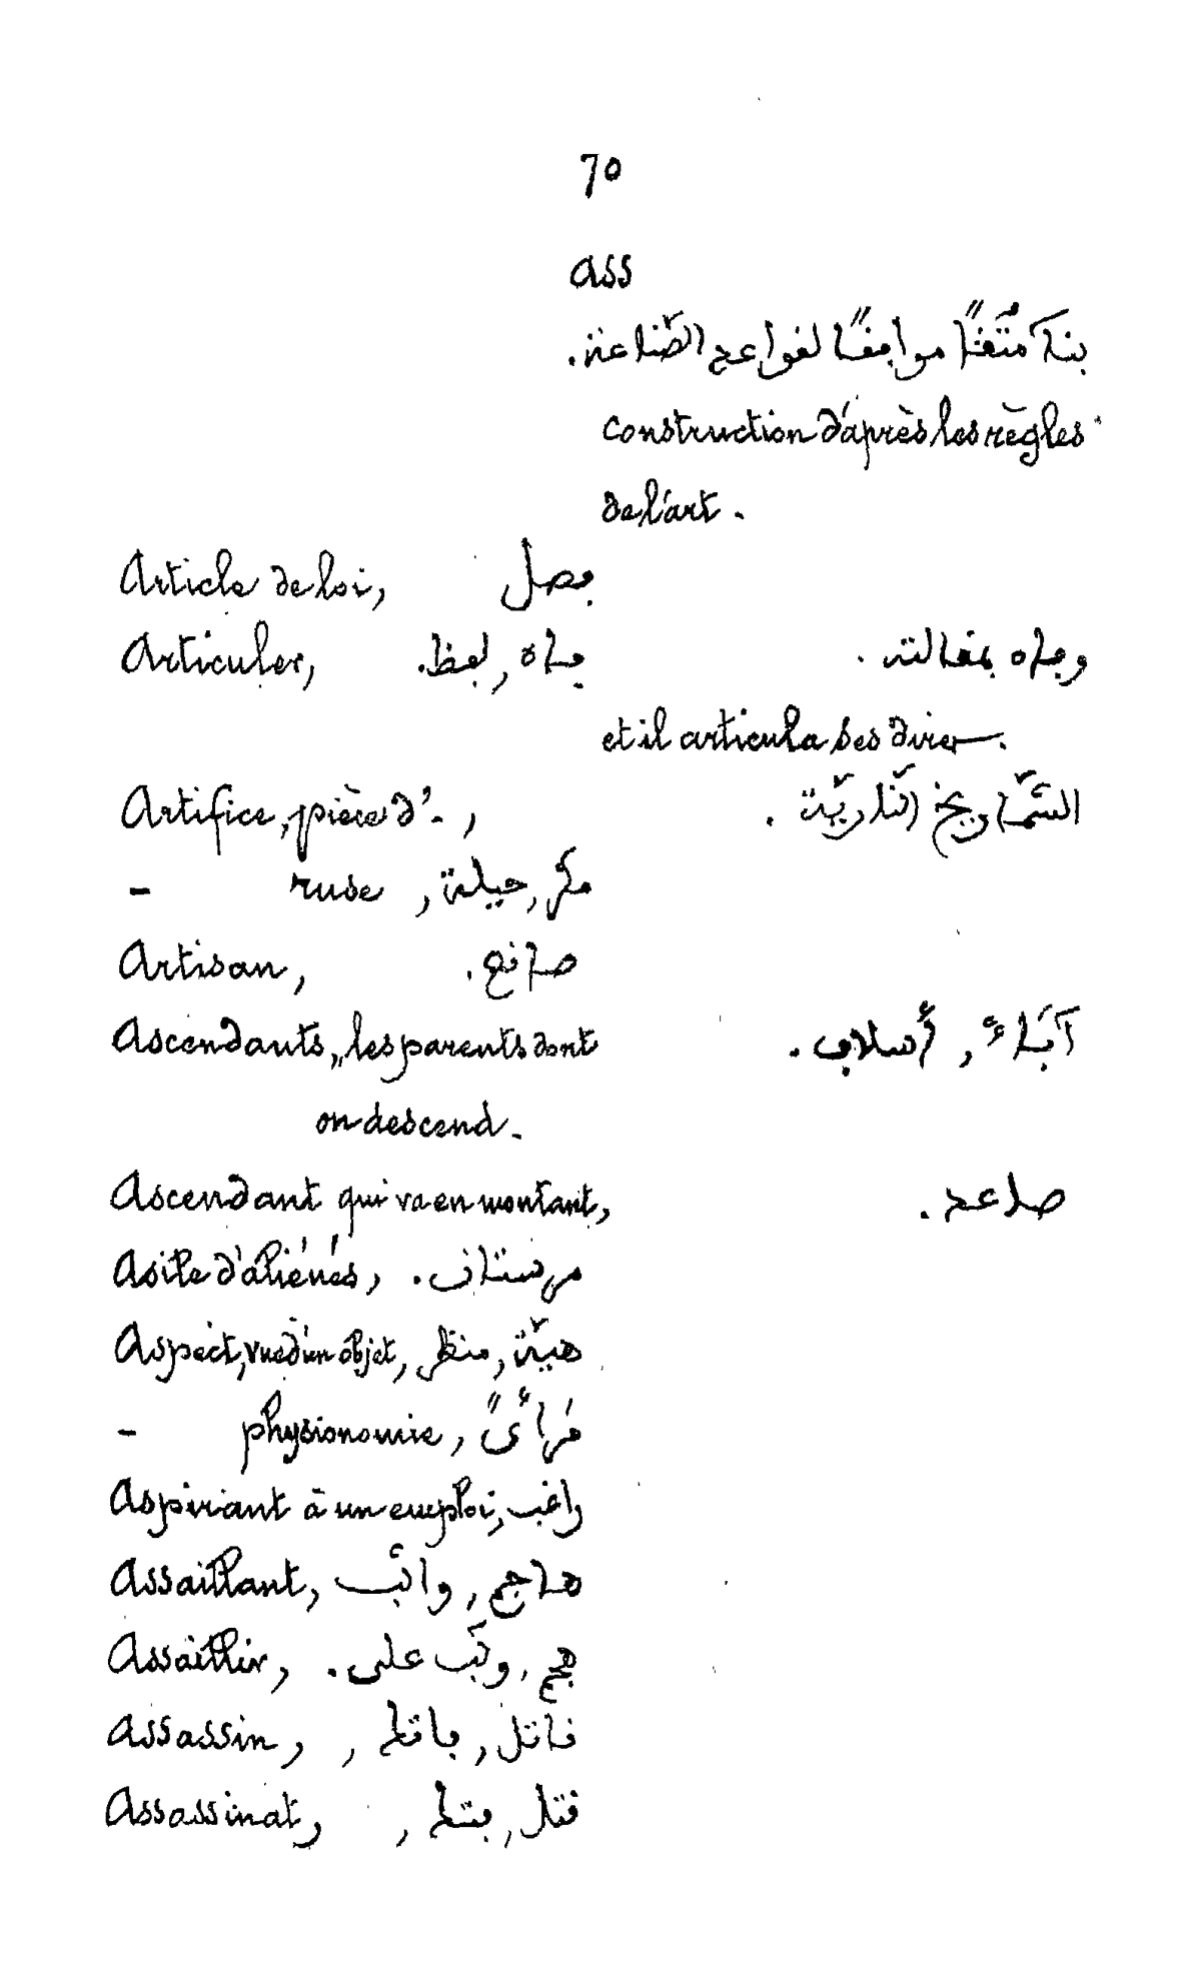 70
ass
بناء مُتْقَنًا موافقًا لقواعد الصّناعة.
construction d'après les règles
de l'art.
Article de loi, فصل
Articuler, فاه, لفظ. وفاه بمقالته.
et il articula ses dires.
Artifice, pièce d'-, الشّماريخ النّاريّة.
- ruse, مكر, حيلة
Artisan, صانع.
Ascendants, les parents dont آبَاءٌ, أسلاف.
on descend.
Ascendant qui va en montant, صاعد.
Asile d'aliénés, مرستان.
Aspect, vue d'un objet, هيّة, منظر
- physionomie, مَرأىً
Aspirant à un emploi, راغب
Assaillant, هاجم, واثب
Assaillir, هجم, وثَب على.
Assassin, قاتل, فاتك,
Assassinat, قتل, فتك,